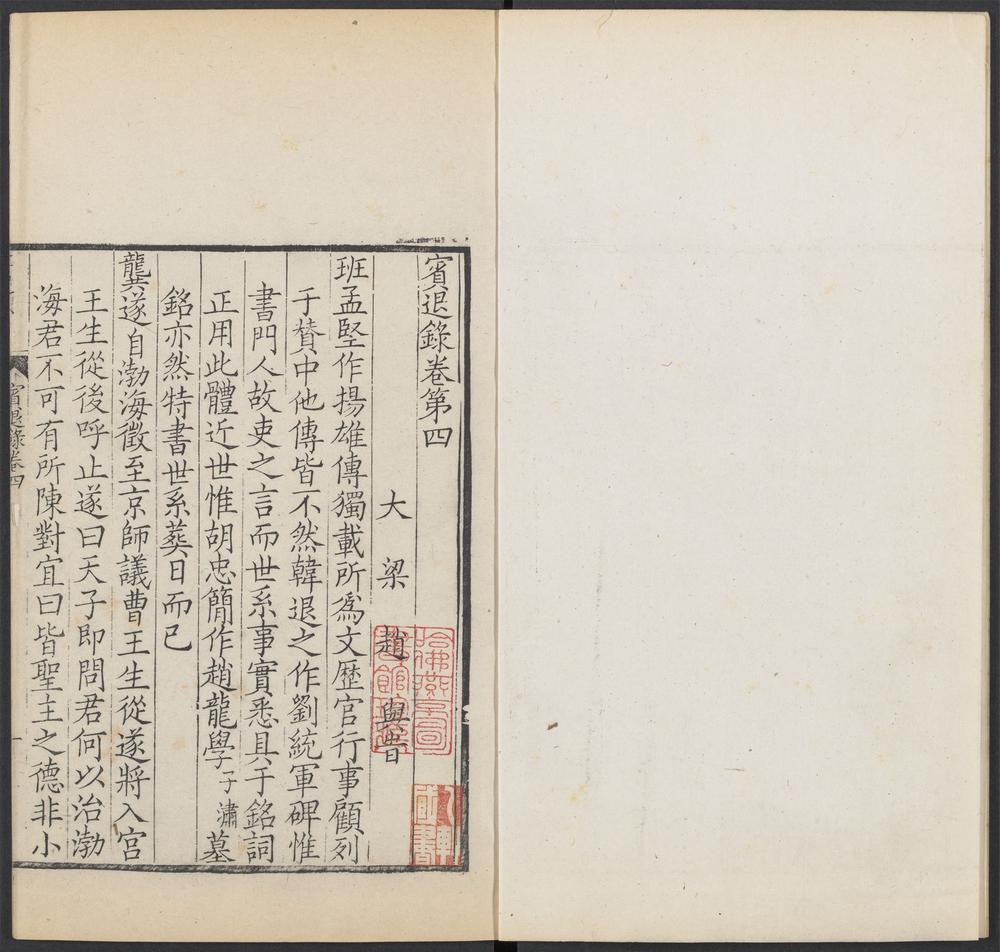 賓退錄卷第四
大梁 趙與旹
班孟堅作揚雄傳獨載所爲文歷官行事顧列
于贊中他傳皆不然韓退之作劉統軍碑惟
書門人故吏之言而世系事實悉具于銘詞
正用此體近世惟胡忠簡作趙龍學子潚墓
銘亦然特書世系葬日而已
龔遂自渤海徵至京師議曹王生從遂將入宮
王生從後呼止遂曰天子即問君何以治渤
海君不可有所陳對宜曰皆聖主之德非小
賓退錄卷四
一
哈佛燕京圖
書館